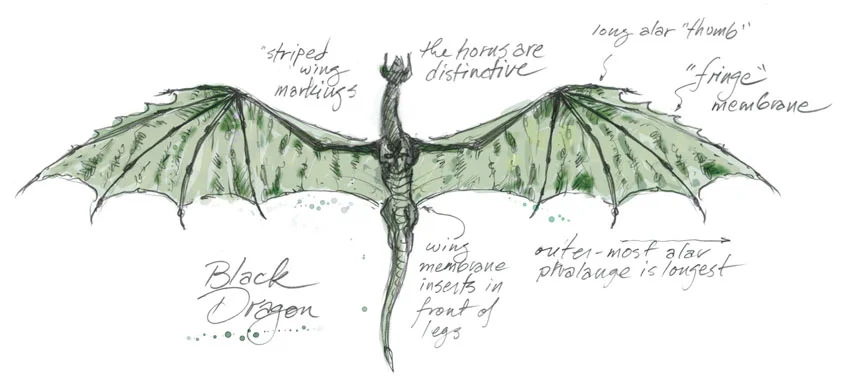 "striped
wing
markings
the horns are
distinctive
long alar "thumb"
"fringe"
membrane
wing
membrane
inserts in
front of
legs
outer-most alar
phalange is longest
Black
Dragon